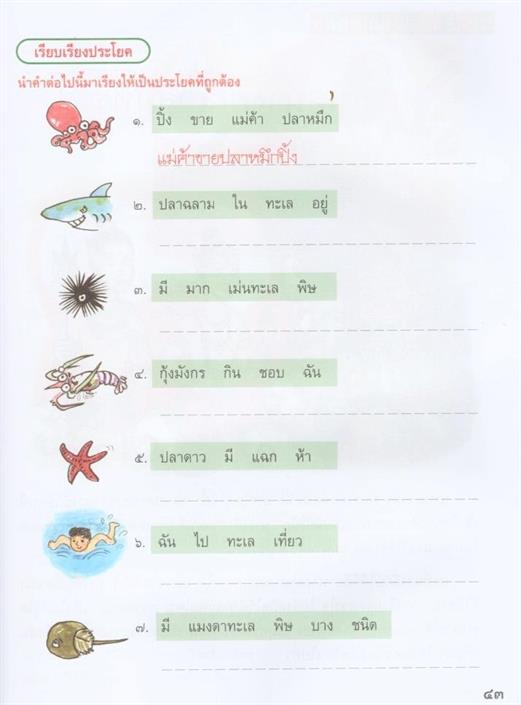 เรียบเรียงประโยค
นำคำต่อไปนี้มาเรียงให้เป็นประโยคที่ถูกต้อง
๑. ปิ้ง ขาย แม่ค้า ปลาหมึก
แม่ค้าขายปลาหมึกปิ้ง
๒. ปลาฉลาม ใน ทะเล อยู่
๓. มี มาก เม่นทะเล พิษ
๔. กุ้งมังกร กิน ชอบ ฉัน
๕. ปลาดาว มี แฉก ห้า
๖. ฉัน ไป ทะเล เที่ยว
๗. มี แมงดาทะเล พิษ บาง ชนิด
๔๓